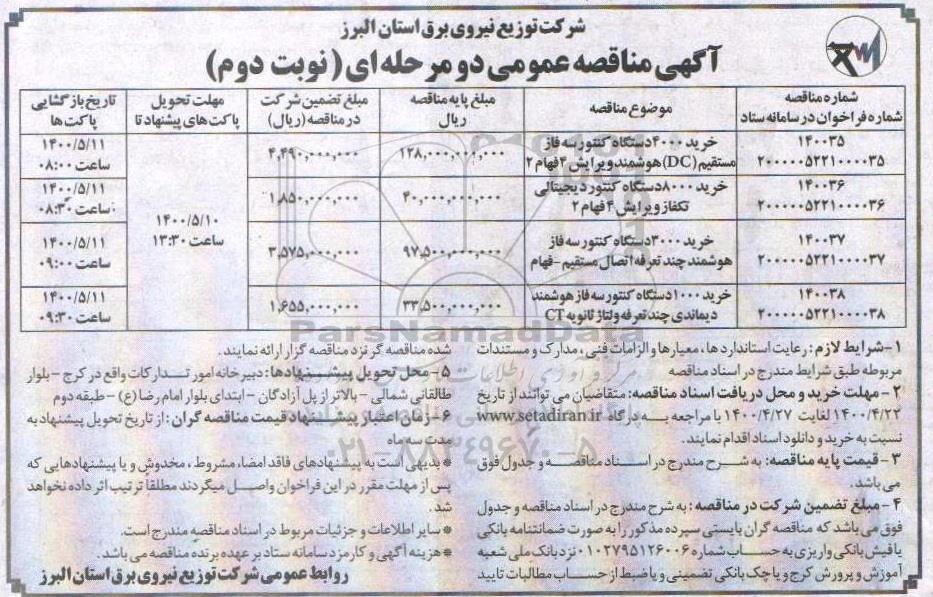 شرکت توزیع نیروی برق استان البرز
آگهی مناقصه عمومی دو مرحله ای (نوبت دوم)
شماره مناقصه
شماره فراخوان در سامانه ستاد
موضوع مناقصه
مبلغ پایه مناقصه
ریال
مبلغ تضمین شرکت
در مناقصه (ریال)
مهلت تحویل
پاکت های پیشنهاد تا
تاریخ بازگشایی
پاکت ها
۱۴۰۰۳۵
۲۰۰۰۰۰۵۲۲۱۰۰۰۰۳۵
خرید ۴۰۰۰ دستگاه کنتور سه فاز
مستقیم (DC) هوشمند ویرایش ۴ فهام ۲
۱۲۸,۰۰۰,۰۰۰,۰۰۰
۴,۴۹۰,۰۰۰,۰۰۰
۱۴۰۰/۵/۱۰
ساعت ۱۳:۳۰
۱۴۰۰/۵/۱۱
ساعت ۰۸:۰۰
۱۴۰۰۳۶
۲۰۰۰۰۰۵۲۲۱۰۰۰۰۳۶
خرید ۸۰۰۰ دستگاه کنتور دیجیتالی
تکفاز ویرایش ۴ فهام ۲
۴۰,۰۰۰,۰۰۰,۰۰۰
۱,۸۵۰,۰۰۰,۰۰۰
۱۴۰۰/۵/۱۱
ساعت ۰۸:۳۰
۱۴۰۰۳۷
۲۰۰۰۰۰۵۲۲۱۰۰۰۰۳۷
خرید ۳۰۰۰ دستگاه کنتور سه فاز
هوشمند چند تعرفه اتصال مستقیم - فهام
۹۷,۵۰۰,۰۰۰,۰۰۰
۳,۵۷۵,۰۰۰,۰۰۰
۱۴۰۰/۵/۱۱
ساعت ۰۹:۰۰
۱۴۰۰۳۸
۲۰۰۰۰۰۵۲۲۱۰۰۰۰۳۸
خرید ۱۰۰۰ دستگاه کنتور سه فاز هوشمند
دیماندی چند تعرفه ولتاژ ثانویه CT
۳۳,۵۰۰,۰۰۰,۰۰۰
۱,۶۵۵,۰۰۰,۰۰۰
۱۴۰۰/۵/۱۱
ساعت ۰۹:۳۰
ParsNamadData
۰۲۱-۸۸۳۴۹۶۷۰-۵
۱- شرایط لازم: رعایت استانداردها، معیارها و الزامات فنی، مدارک و مستندات
مربوطه طبق شرایط مندرج در اسناد مناقصه
۲- مهلت خرید و محل دریافت اسناد مناقصه: متقاضیان می توانند از تاریخ
۱۴۰۰/۴/۲۲ لغایت ۱۴۰۰/۴/۲۷ با مراجعه به درگاه www.setadiran.ir
نسبت به خرید و دانلود اسناد اقدام نمایند.
۳- قیمت پایه مناقصه: به شرح مندرج در اسناد مناقصه و جدول فوق
می باشد.
۴- مبلغ تضمین شرکت در مناقصه: به شرح مندرج در اسناد مناقصه و جدول
فوق می باشد که مناقصه گران بایستی سپرده مذکور را به صورت ضمانتنامه بانکی
یا فیش بانکی واریزی به حساب شماره ۰۱۰۲۷۹۵۱۲۶۰۰۶ نزد بانک ملی شعبه
آموزش و پرورش کرج و یا چک بانکی تضمینی و یا ضبط از حساب مطالبات تایید
شده مناقصه گر نزد مناقصه گزار ارائه نمایند.
۵- محل تحویل پیشنهادها: دبیرخانه امور تدارکات واقع در کرج - بلوار
طالقانی شمالی - بالاتر از پل آزادگان - ابتدای بلوار امام رضا (ع) - طبقه دوم
۶- زمان اعتبار پیشنهاد قیمت مناقصه گران: از تاریخ تحویل پیشنهاد به
مدت سه ماه
* بدیهی است به پیشنهادهای فاقد امضا، مشروط، مخدوش و یا پیشنهادهایی که
پس از مهلت مقرر در این فراخوان واصل میگردند مطلقا ترتیب اثر داده نخواهد
شد.
* سایر اطلاعات و جزئیات مربوط در اسناد مناقصه مندرج است.
* هزینه آگهی و کارمزد سامانه ستاد بر عهده برنده مناقصه می باشد.
روابط عمومی شرکت توزیع نیروی برق استان البرز